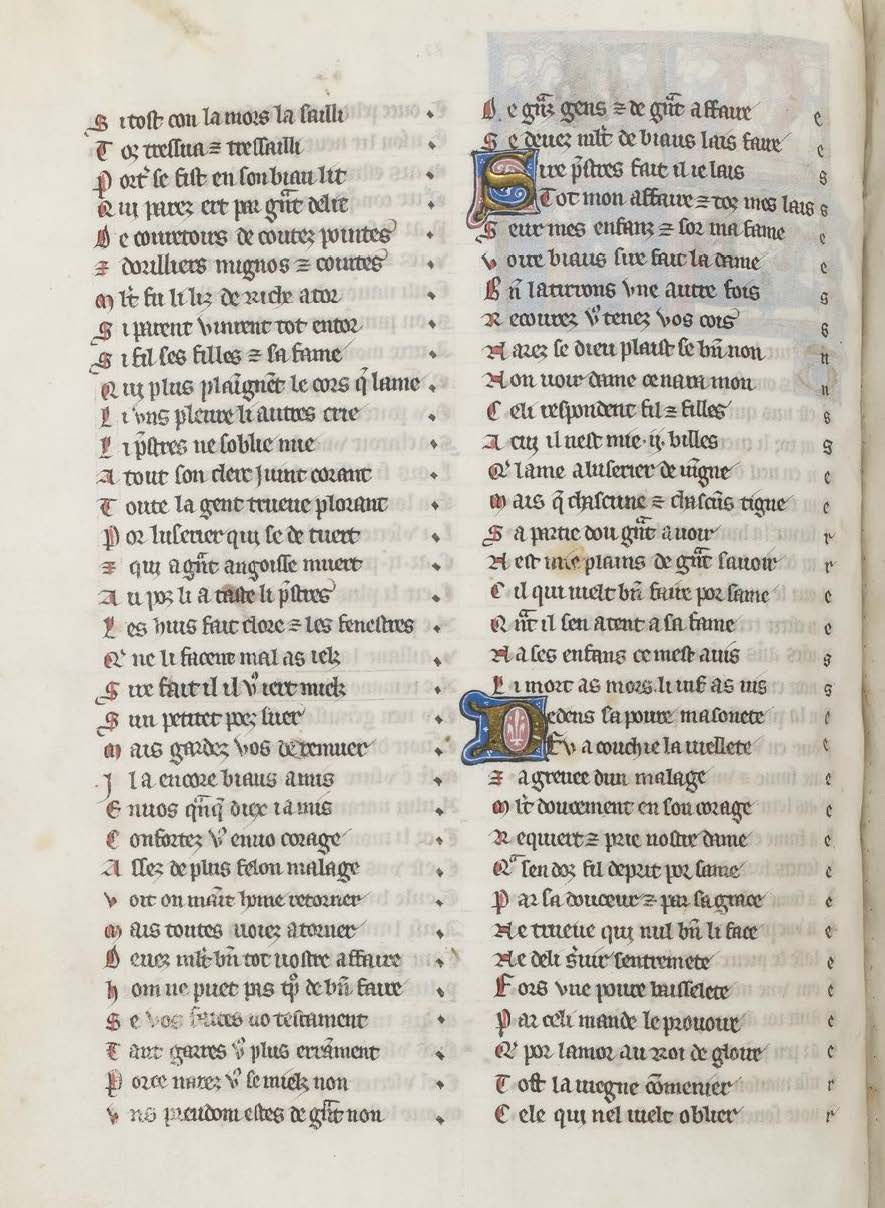 S i tost con la mors la sailli
T oz tressua ⁊ tressailli
P ort' se fist en son biau lit
Q ui parez ert par gñt delit
D e couretous de coutez pointes
⁊ dorilliers mignos ⁊ cointes
m lt fu li liz de riche ator
S i parent vinrent tot entor
S i fil ses filles ⁊ sa fame
Q ui plus plaignẽt le cors q̃ lame
L i vns pleure li autres crie
L i p̃stres ne soblie mie
A tout son clerc j uint corant
T oute la gent trueue plorant
P or luserier qui se de tuert
⁊ qui a gñt angoisse muert
A u poz li a taste li p̃stres
L es huis fait clore ⁊ les fenestres
Q' ne li facent mal as ielz
S ire fait il il v' iert mielz
S un petitet poez suer
m ais gardez vos de remuer
J l a encore biaus amis
E nuos q̃nq̃ diex i a mis
C onfortez v' en uo corage
A ssez de plus felon malage
v oit on maĩt home retorner
m ais toutes uoiez atorner
D euez mlt bñ tot uostre affaire
h om ne puet pas tp̃ de bñ faire
S e vos faites uo testament
T ant garres v' plus errãment
P orce narez v' se mielz non
v ns preudom estes de gñt non
D e gñz gens ⁊ de gñt affaire e
S e deuez mlt de biaus lais faire e
S ire p̃stres fait il ie lais s
T ot mon affaire ⁊ toz mes lais s
S eur mes enfanz ⁊ sor ma fame e
v oire biaus sire fait la dame e
B ñ latirrons vne autre fois s
R ecourez v' tenez vos cois s
N arez se dieu plaist se bñ non n
N on uoir dame ce nara mon n
C eli respondent fil ⁊ filles s
A cui il nest mie .ij. billes s
Q' lame a luserier de uigne e
m ais q̃ chascune ⁊ chascũs tigne e
S a partie dou gñt auoir r
N est mie plains de gñt sauoir r
C il qui uielt bñ faire por same e
Q ñt il sen atent a sa fame e
N a ses enfans ce mest auis s
L i mort as mors li uif as uis s
D edens sa poure masonete e
F v a couchie la uiellete e
⁊ agreuee dun malage e
m lt doucement en son corage e
R equiert ⁊ prie nostre dame e
Q' sen doz fil deprit por same e
P ar sa douceur ⁊ par sa grace e
N e trueue qui nul bñ li face e
N e deli s'uir sentremete e
F ors vne poure baisselete e
P ar celi mande le prouoire e
Q' por lamor au roi de gloire e
T ost la uiegne cõmenier r
C ele qui nel uielt oblier r